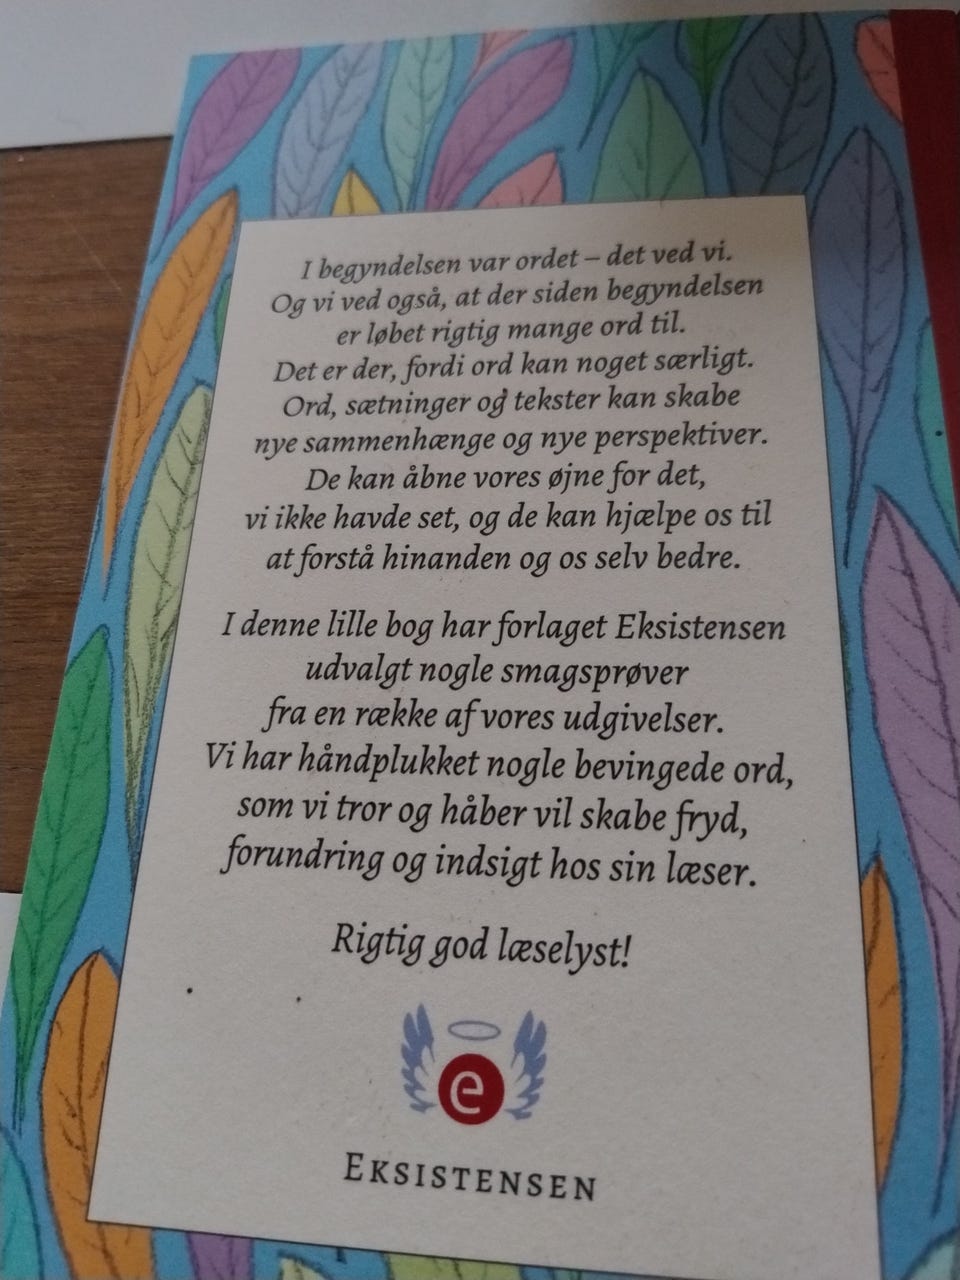 I begyndelsen var ordet – det ved vi.
Og vi ved også, at der siden begyndelsen
er løbet rigtig mange ord til.
Det er der, fordi ord kan noget særligt.
Ord, sætninger og tekster kan skabe
nye sammenhænge og nye perspektiver.
De kan åbne vores øjne for det,
vi ikke havde set, og de kan hjælpe os til
at forstå hinanden og os selv bedre.
I denne lille bog har forlaget Eksistensen
udvalgt nogle smagsprøver
fra en række af vores udgivelser.
Vi har håndplukket nogle bevingede ord,
som vi tror og håber vil skabe fryd,
forundring og indsigt hos sin læser.
Rigtig god læselyst!
e
EKSISTENSEN